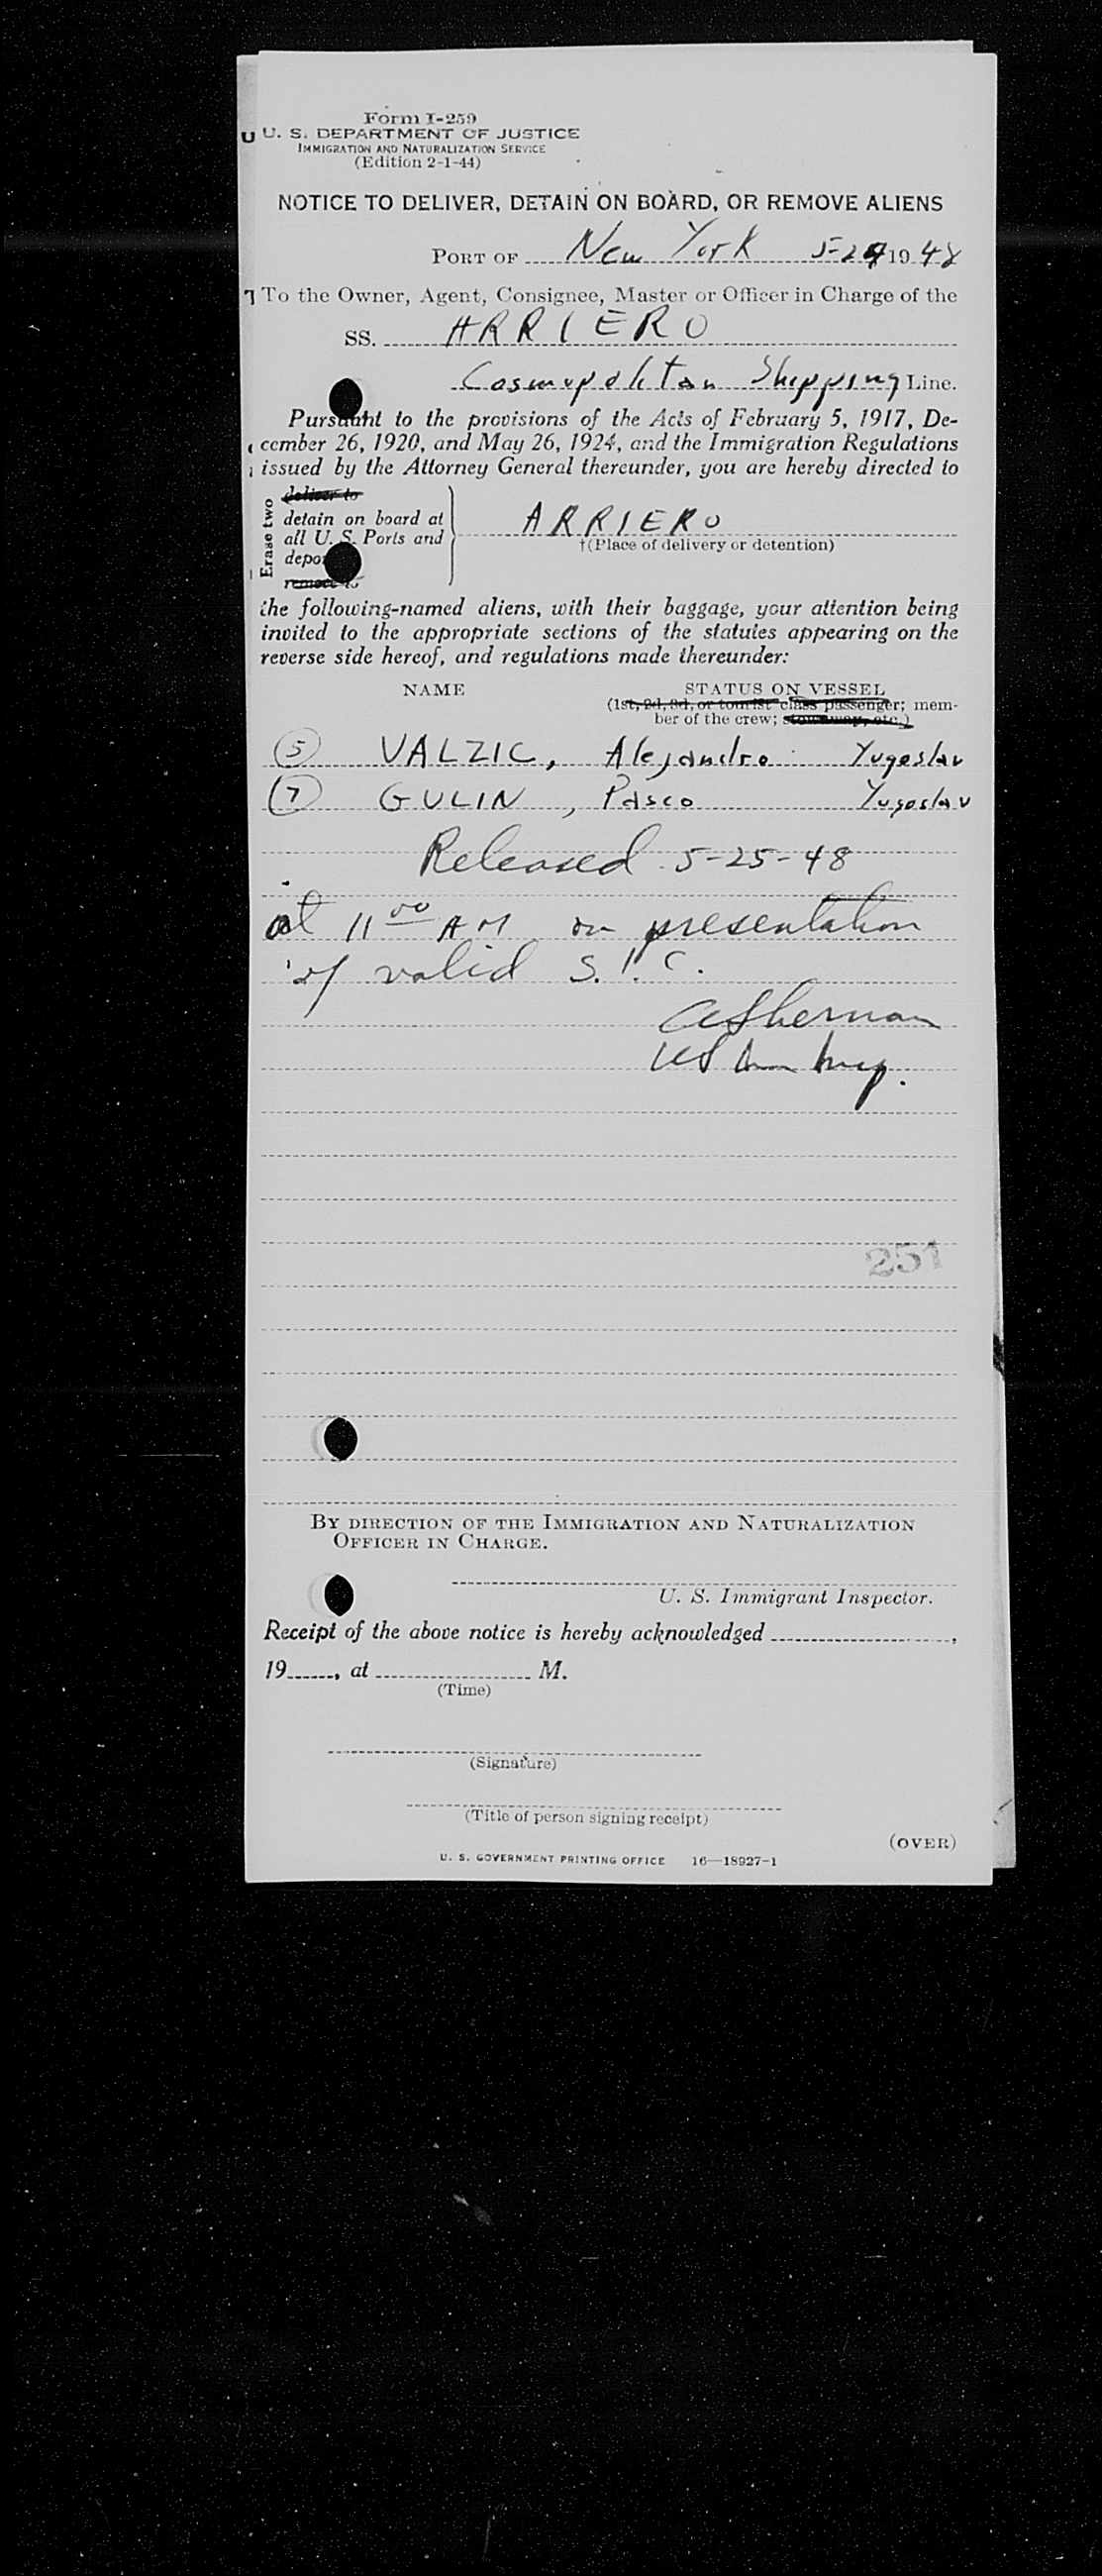 Form I-259
U U. S. DEPARTMENT OF JUSTICE
IMMIGRATION AND NATURALIZATION SERVICE
(Edition 2-1-44)
NOTICE TO DELIVER, DETAIN ON BOARD, OR REMOVE ALIENS
PORT OF New York 5-24 1948
To the Owner, Agent, Consignee, Master or Officer in Charge of the
SS. ARRIERO
Cosmopolitan Shipping Line.
Pursuant to the provisions of the Acts of February 5, 1917, De-
cember 26, 1920, and May 26, 1924, and the Immigration Regulations
issued by the Attorney General thereunder, you are hereby directed to
Erase two
deliver to
detain on board at
all U. S. Ports and
depo
remove to
ARRIERO
†(Place of delivery or detention)
the following-named aliens, with their baggage, your attention being
invited to the appropriate sections of the statutes appearing on the
reverse side hereof, and regulations made thereunder:
NAME STATUS ON VESSEL
(1st, 2d, 3d, or tourist class passenger; mem-
ber of the crew; stowaway, etc.)
(5) VALZIC, Alejandro Yugoslav
(7) GULIN, Pasco Yugoslav
Released 5-25-48
at 11 00 AM on presentation
of valid S.I.C.
A Sherman
US Imm Insp.
251
BY DIRECTION OF THE IMMIGRATION AND NATURALIZATION
OFFICER IN CHARGE.
U. S. Immigrant Inspector.
Receipt of the above notice is hereby acknowledged ,
19 , at M.
(Time)
(Signature)
(Title of person signing receipt)
(OVER)
U. S. GOVERNMENT PRINTING OFFICE 16—18927-1